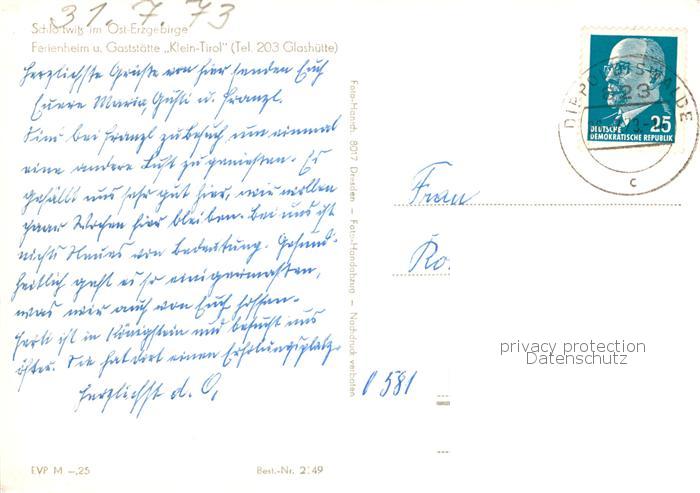 31.7.73
Schlottwitz im Ost-Erzgebirge
Ferienheim u. Gaststätte „Klein-Tirol" (Tel. 203 Glashütte)
Herzlichste Grüße von hier senden Euch
Euere Maria, Gusti u. Franzl.
Sind bei Franzl zu Besuch, um einmal
eine andere Luft zu genießen. Es
gefällt uns sehr gut hier, wir wollen
paar Wochen hier bleiben. Bei uns ist
nichts Neues von Bedeutung. Gesund-
heitlich geht es so einigermaßen,
was wir auch von Euch hoffen.
ist in Königstein und besucht uns
öfter. Sie hat dort einen Erholungsplatz.
Herzlichst d. O.
EVP M –,25
Best.-Nr. 2149
Foto-Handt, 8017 Dresden – Foto-Handabzug – Nachdruck verboten
DIPPOLDISWALDE
823
c
25
DEUTSCHE
DEMOKRATISCHE REPUBLIK
Frau
Ro
privacy protection
Datenschutz
581